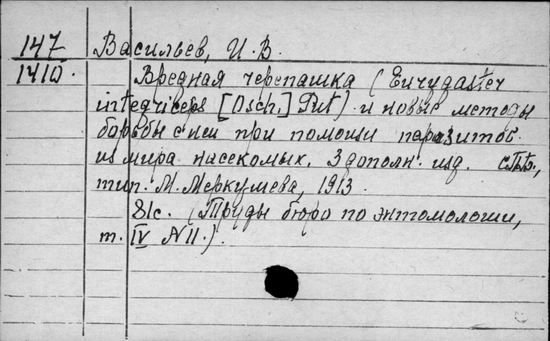 147 Васильев, И. В.
1410. Вредная черепашка (Eurygaster
integriceps [Osch.] Put) и новые методы
борьбы с ней при помощи паразитов
из мира насекомых. 3 дополн. изд. СПб.,
тип. М. Меркушева, 1913.
81с. (Труды бюро по энтомологии,
т. IV N 11.)